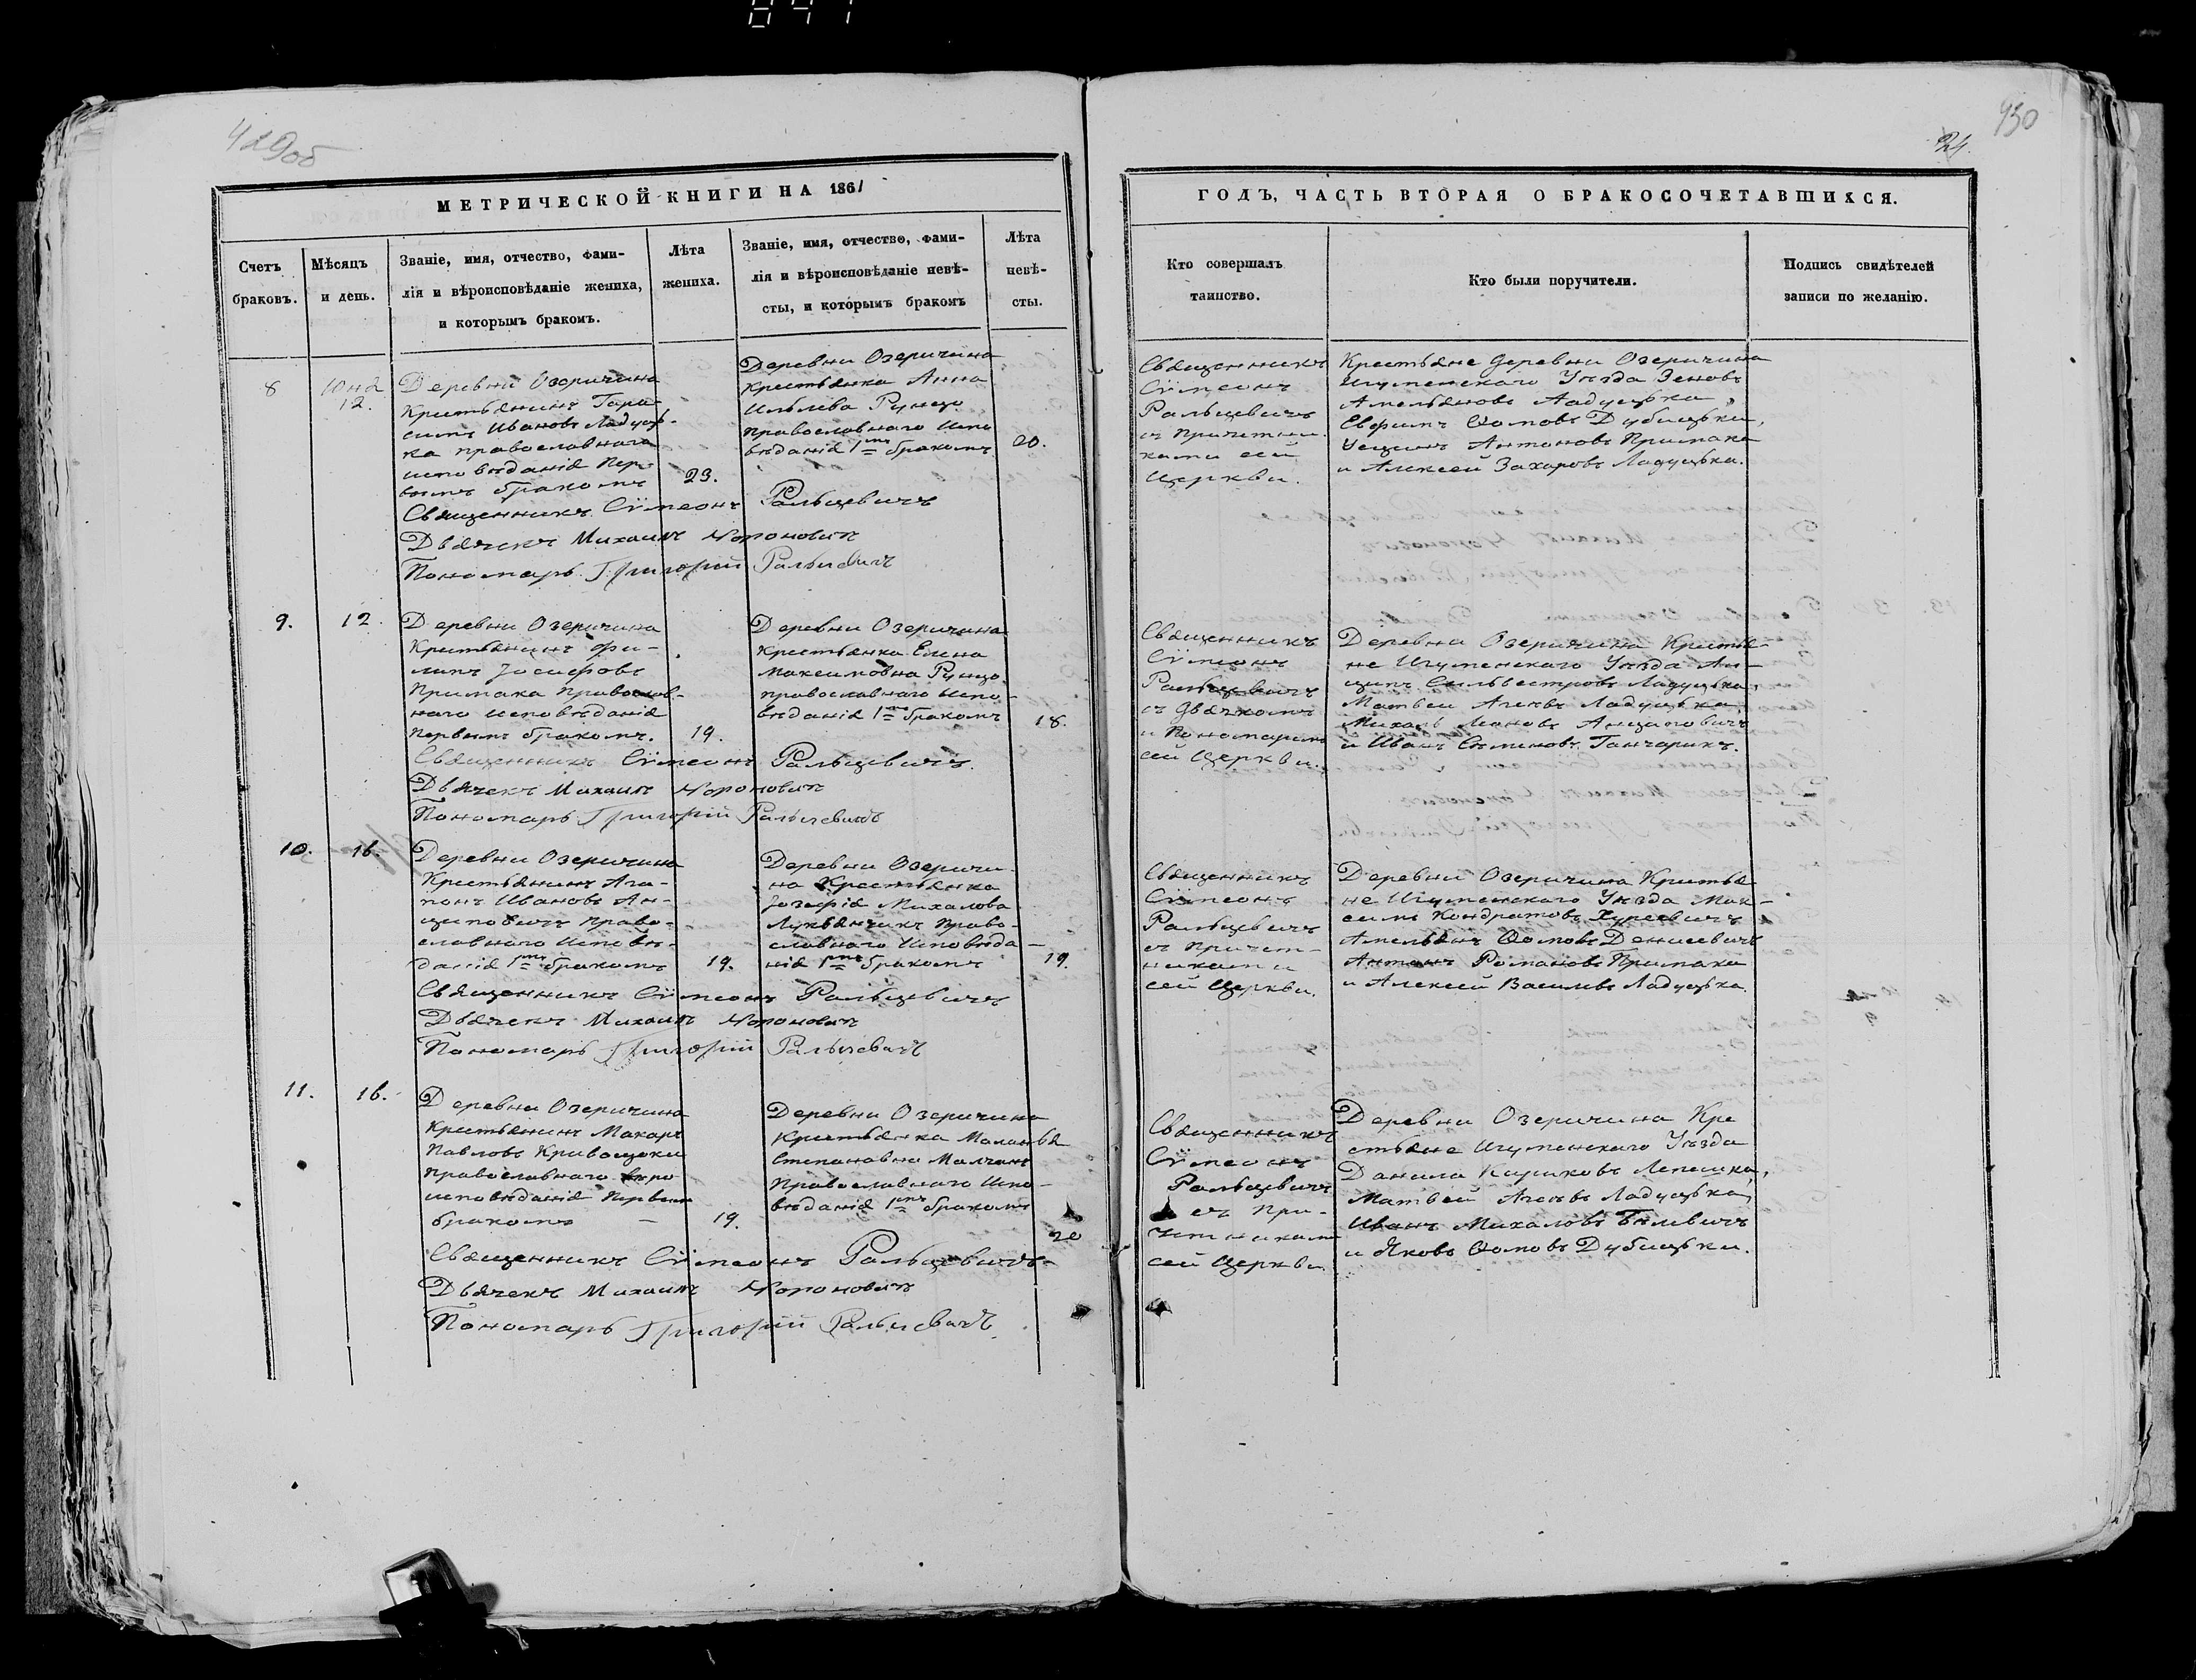 841
429об
МЕТРИЧЕСКОЙ КНИГИ НА 1861
Счетъ
браковъ.
Мѣсяцъ
и день.
Званіе, имя, отчество, фами-
лія и вѣроисповѣданіе жениха,
и которымъ бракомъ.
Лѣта
жениха.
Званіе, имя, отчество, фами-
лія и вѣроисповѣданіе невѣ-
сты, и которымъ бракомъ
Лѣта
невѣ-
сты.
8
Юня
12.
Деревни Озеричина
Крестьянинъ Гара-
симъ Ивановъ Ладуць-
ка православнаго
исповѣданія пер-
вымъ бракомъ
23.
Деревни Озеричина
крестьянка Анна
Ильева Рунцо
православнаго испо
вѣданія 1мъ бракомъ
20.
Священникъ Сѵмеонъ Ральцевичъ
Дьячекъ Михаилъ
Пономарь Григорій Ральцевичъ
9.
12.
Деревни Озеричина
Крестьянинъ Фи-
липъ Іосифовъ
Примака православ-
наго исповѣданія
первымъ бракомъ.
19.
Деревни Озеричина
крестьянка Елена
Максимовна Рунцо
православнаго испо-
вѣданія 1мъ бракомъ
18.
Священникъ Сѵмеонъ Ральцевичъ.
Дьячекъ Михаилъ
Пономарь Григорій Ральцевичъ
10.
16.
Деревни Озеричина
Крестьянинъ Ага-
понъ Ивановъ Ан-
циповичъ право-
славнаго исповѣ-
данія 1мъ бракомъ
19.
Деревни Озеричи-
на Крестьянка
Іозефія Михалова
Лукьянчикъ право-
славнаго исповѣда-
нія 1мъ бракомъ
19.
Священникъ Сѵмеонъ Ральцевичъ
Дьячекъ Михаилъ
Пономарь Григорій Ральцевичъ
11.
16.
Деревни Озеричина
Крестьянинъ Макаръ
Павловъ Кривощеки
православнаго
исповѣданія первымъ
бракомъ
19.
Деревни Озеричина
Крестьянка Маланья
Степановна Молчанъ
Православнаго испо-
вѣданія 1мъ бракомъ
20
Священникъ Сѵмеонъ Ральцевичъ
Дьячекъ Михаилъ
Пономарь Григорій Ральцевичъ.
930
24.
ГОДЪ, ЧАСТЬ ВТОРАЯ О БРАКОСОЧЕТАВШИХСЯ.
Кто совершалъ
таинство.
Кто были поручители.
Подпись свидѣтелей
записи по желанію.
Священникъ
Сѵмеонъ
Ральцевичъ
съ причетни-
ками сей
Церкви.
Крестьяне деревни Озеричина
Игуменскаго Уѣзда Зеновъ
Амельяновъ Ладуцька,
Ефимъ Ѳомовъ Дубицьки,
Устинъ Антоновъ Примака
и Алексей Захаровъ Ладуцька.
Священникъ
Сѵмеонъ
Ральцевичъ
съ дьячкомъ
и Пономаремъ
сей Церкви.
Деревни Озеричина Крестья-
не Игуменскаго Уѣзда Ан-
ципъ Сильвестровъ Ладуцька,
Матвей Агевъ Ладуцька,
Михалъ Леоновъ Анциповичъ
и Иванъ Семеновъ Ганчарикъ.
Священникъ
Сѵмеонъ
Ральцевичъ
съ причет-
никами
сей Церкви.
Деревни Озеричина Крестья
не Игуменскаго Уѣзда Мак-
симъ Кондратовъ
Амельянъ Ѳомовъ Денисевичъ
Антонъ Романовъ Примака
и Алексей Василевъ Ладуцька.
Священникъ
Сѵмеонъ
Ральцевичъ
съ при-
четниками
сей Церкви.
Деревни Озеричина Кре
стьяне Игуменскаго Уѣзда
Данила Кириковъ Лепешка,
Матвей Агевъ Ладуцька,
Иванъ Михаловъ Билевичъ
и Яковъ Ѳомовъ Дубицьки.